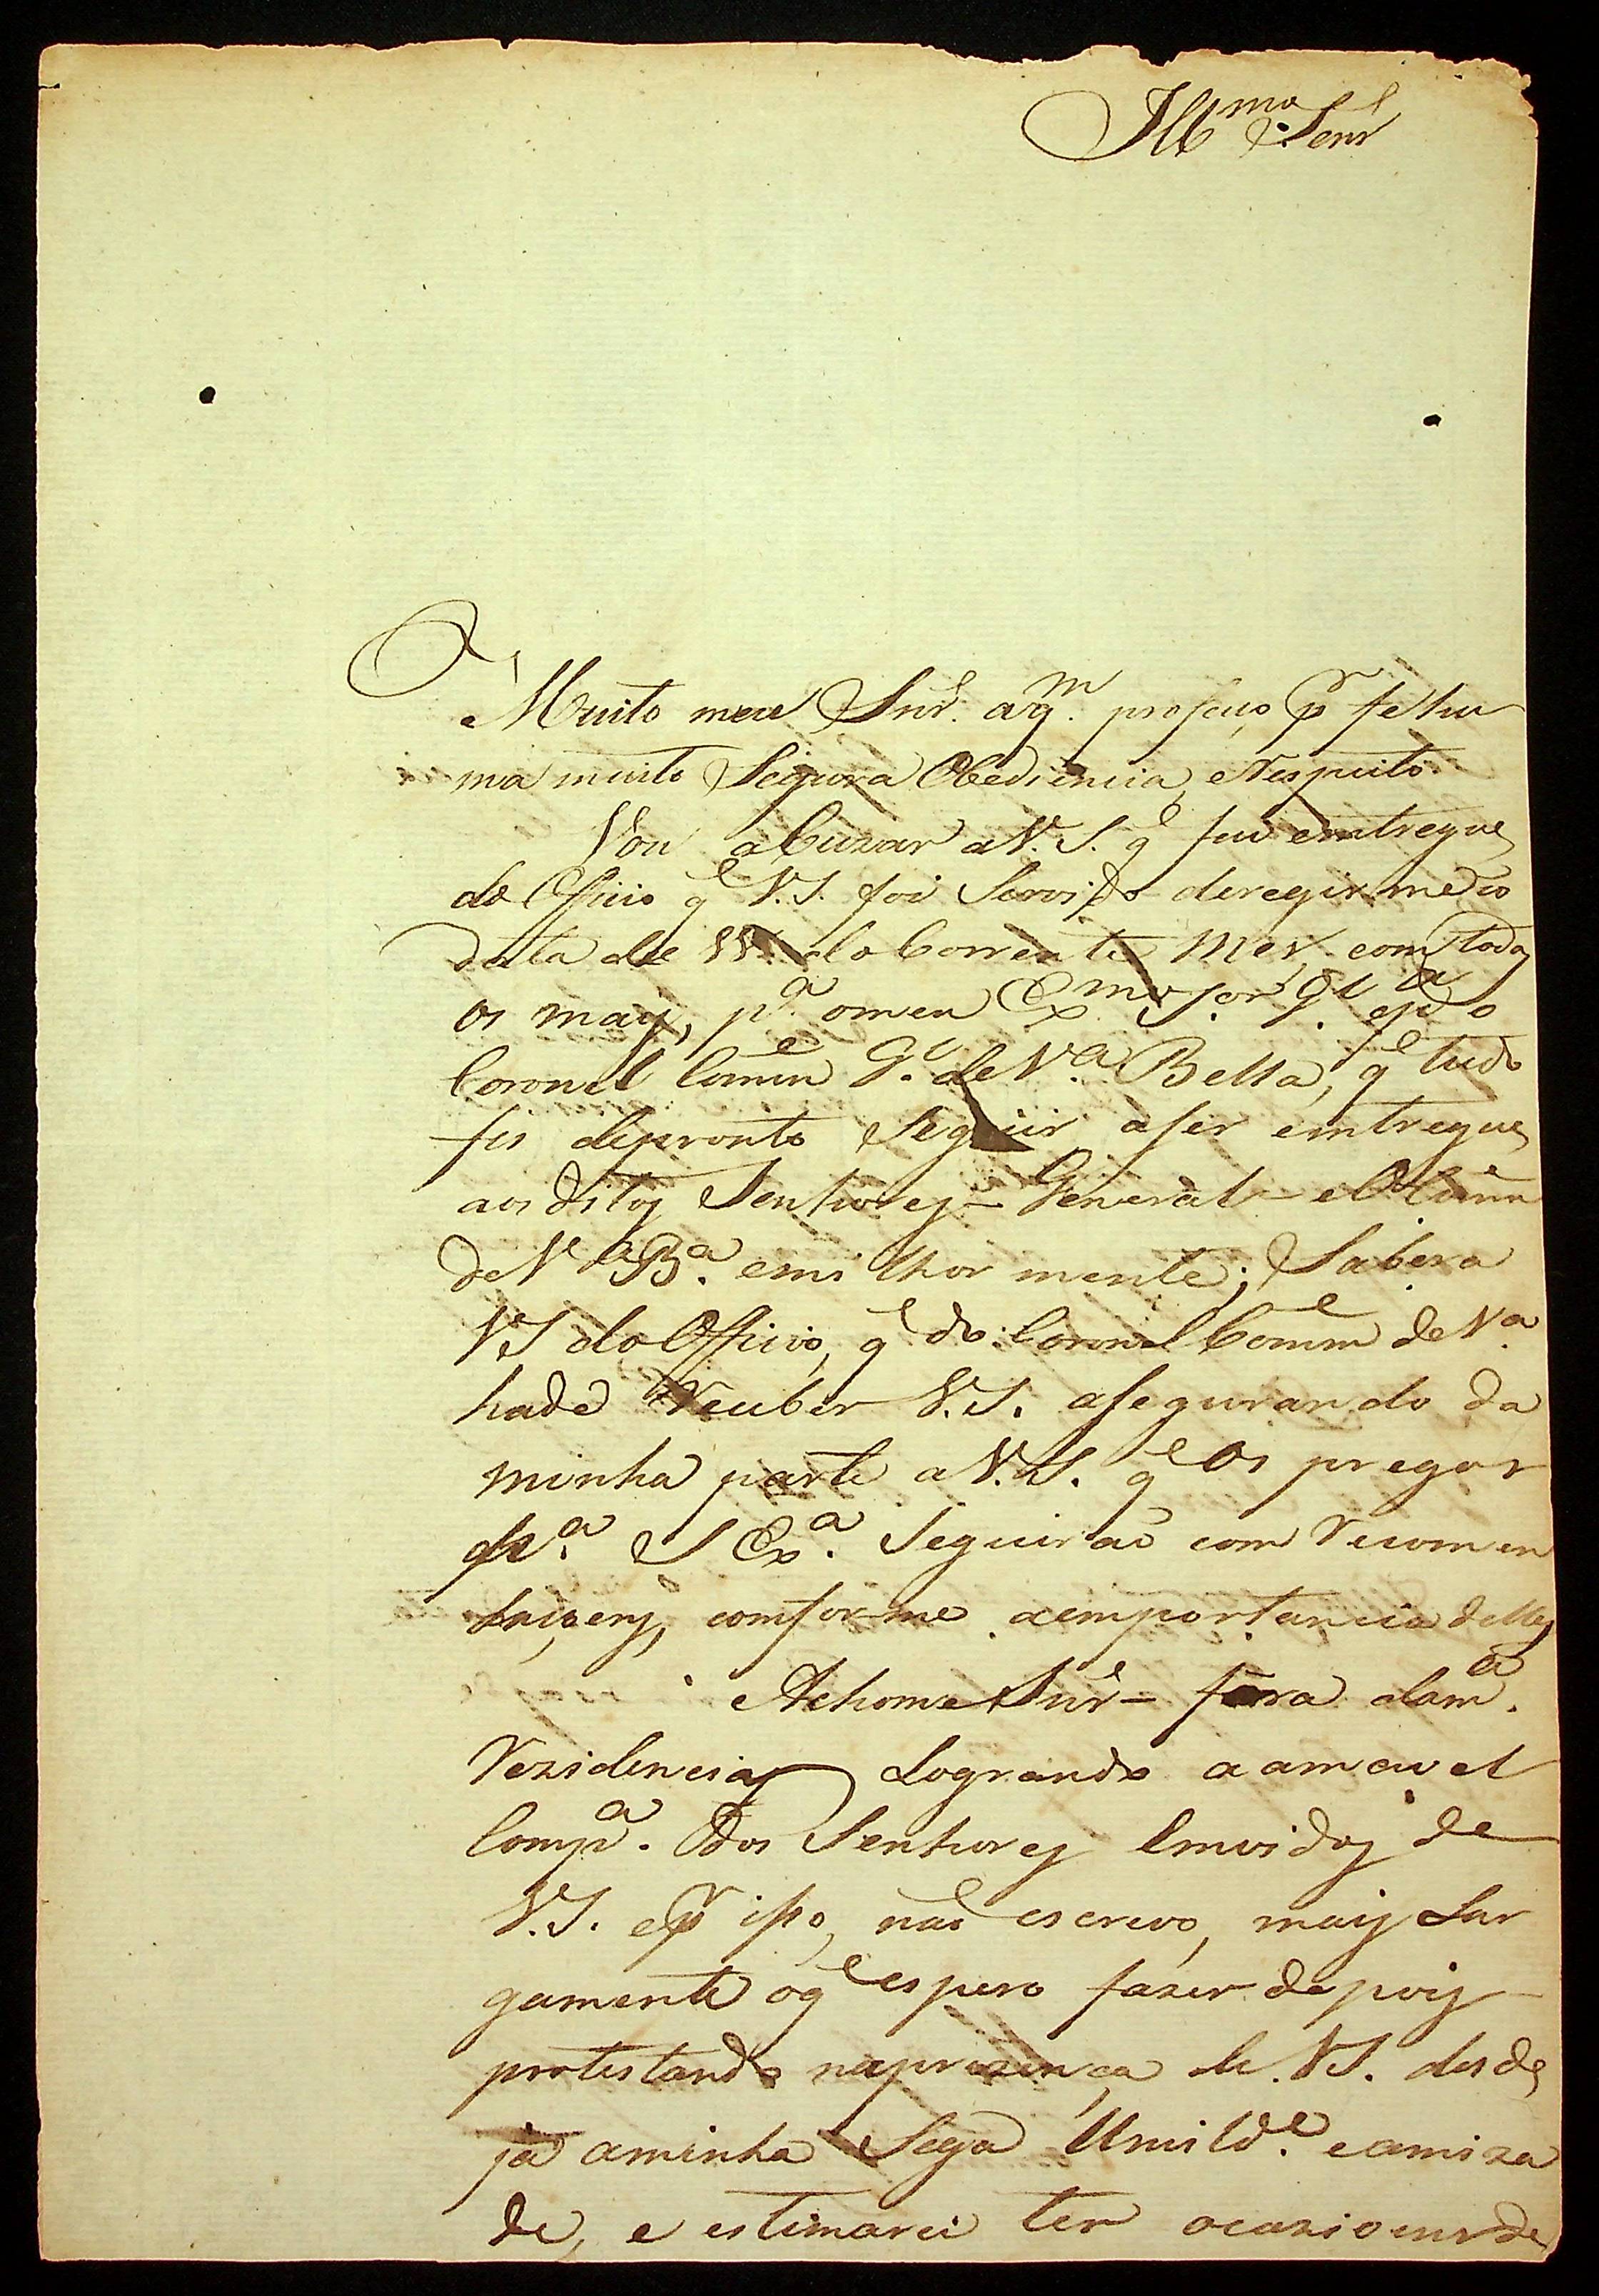 Ill.mo Senr
Muito meu Snr. aq.m profeço pr fe hu
ma muito Segura Obediencia, e Respeito
Vou acuzar a V. S. qe fui emtregue
do Officio qe V. S. foi Servido deregirme
data de do Corrente Mes, com todos
os mais, pa. o meu Exmo Sor. Gl epa o
Coronel Comme Gl. de Va. Bella, qe tudo
fis depronto Seguir aser emtregue
aos ditos Senhores General e
de Va Ba. emilhor mente; Sabera
VS do Officio, qe do Coronel Comme de Va.
hade Receber V. S. asegurando da
minha parte a V. S. qe os pregos
pa. S Exa. Seguirão com Recomen
daçoens, comforme aemportancia delles
Achome Snr fora dama.
Rezidencia Logrando a amavel
Compa. dos Senhores emvidos de
V. S. e pr isso, não escrevo, mais Lar
gamente oqe espero fazer depois
protestando naprezença de VS. desde
já aminha Sega Umilde. eamiza
de, e estimarei ter ocazioens de